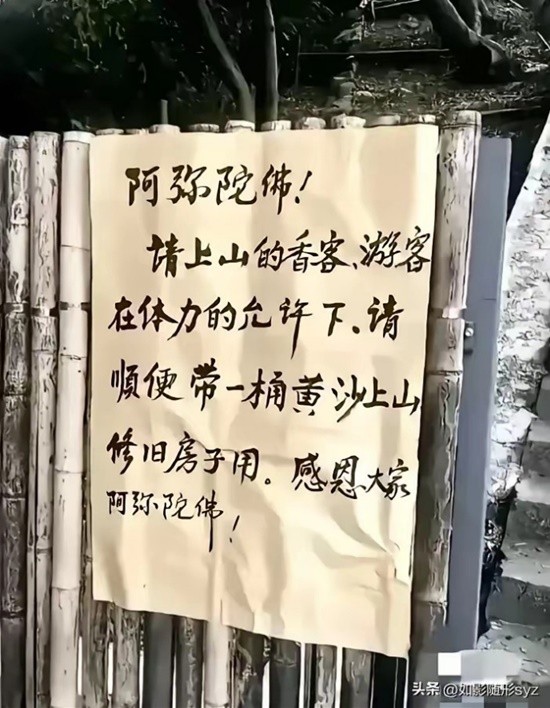 阿弥陀佛!
请上山的香客、游客
在体力的允许下、请
顺便带一桶黄沙上山
修旧房子用。感恩大家
阿弥陀佛!
头条 @如影随形syz